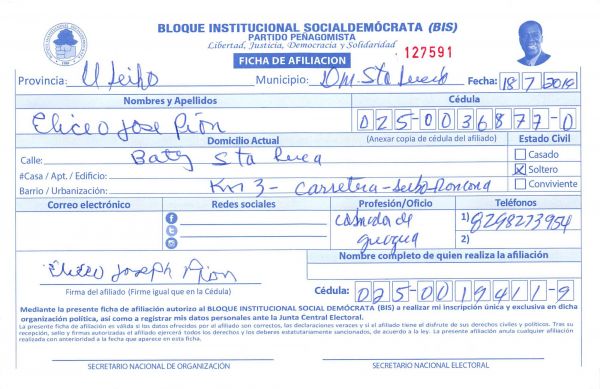 BLOQUE INSTITUCIONAL SOCIALDEMÓCRATA (BIS)
PARTIDO PEÑAGOMISTA
Libertad, Justicia, Democracia y Solidaridad
FICHA DE AFILIACION
127591
Provincia: Municipio: D.M. Sta Fecha: 18/7/2019
Nombres y Apellidos Cédula
Eliceo Jose Pion 025-0036877-0
Domicilio Actual (Anexar copia de cédula del afiliado) Estado Civil
Calle: Batey Sta Lucia Casado
#Casa / Apt. / Edificio: X Soltero
Barrio / Urbanización: Km 3- Carretera-Seibo-Roncona Conviviente
Correo electrónico Redes sociales Profesión/Oficio Teléfonos
1) 8298273954
2)
Nombre completo de quien realiza la afiliación
Eliceo Joseph Pion
Firma del afiliado (Firme igual que en la Cédula) Cédula: 025-0019411-9
Mediante la presente ficha de afiliación autorizo al BLOQUE INSTITUCIONAL SOCIAL DEMÓCRATA (BIS) a realizar mi inscripción única y exclusiva en dicha
organización política, así como a registrar mis datos personales ante la Junta Central Electoral.
La presente ficha de afiliación es válida si los datos ofrecidos por el afiliado son correctos, las declaraciones veraces y si el afiliado tiene el disfrute de sus derechos civiles y políticos. Tras su
recepción, sello y firmas autorizadas el afiliado ejercerá todos los derechos y los deberes estatutariamente sancionados, de acuerdo a la ley. La presente afiliación anula cualquier afiliación
realizada con anterioridad a la fecha que aparece en esta ficha.
SECRETARIO NACIONAL DE ORGANIZACIÓN SECRETARIO NACIONAL ELECTORAL